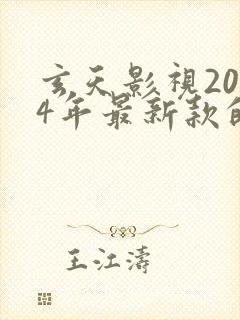 玄天影視20
4年最新款的
王江濤